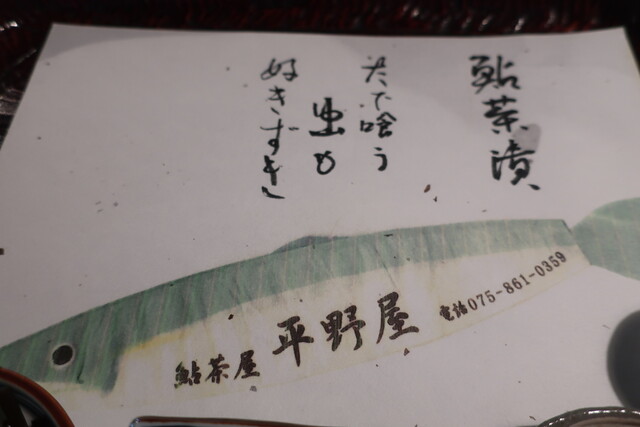 鮎茶漬
たで喰う
虫も
好きずき
鮎茶屋 平野屋 電話075-861-0359